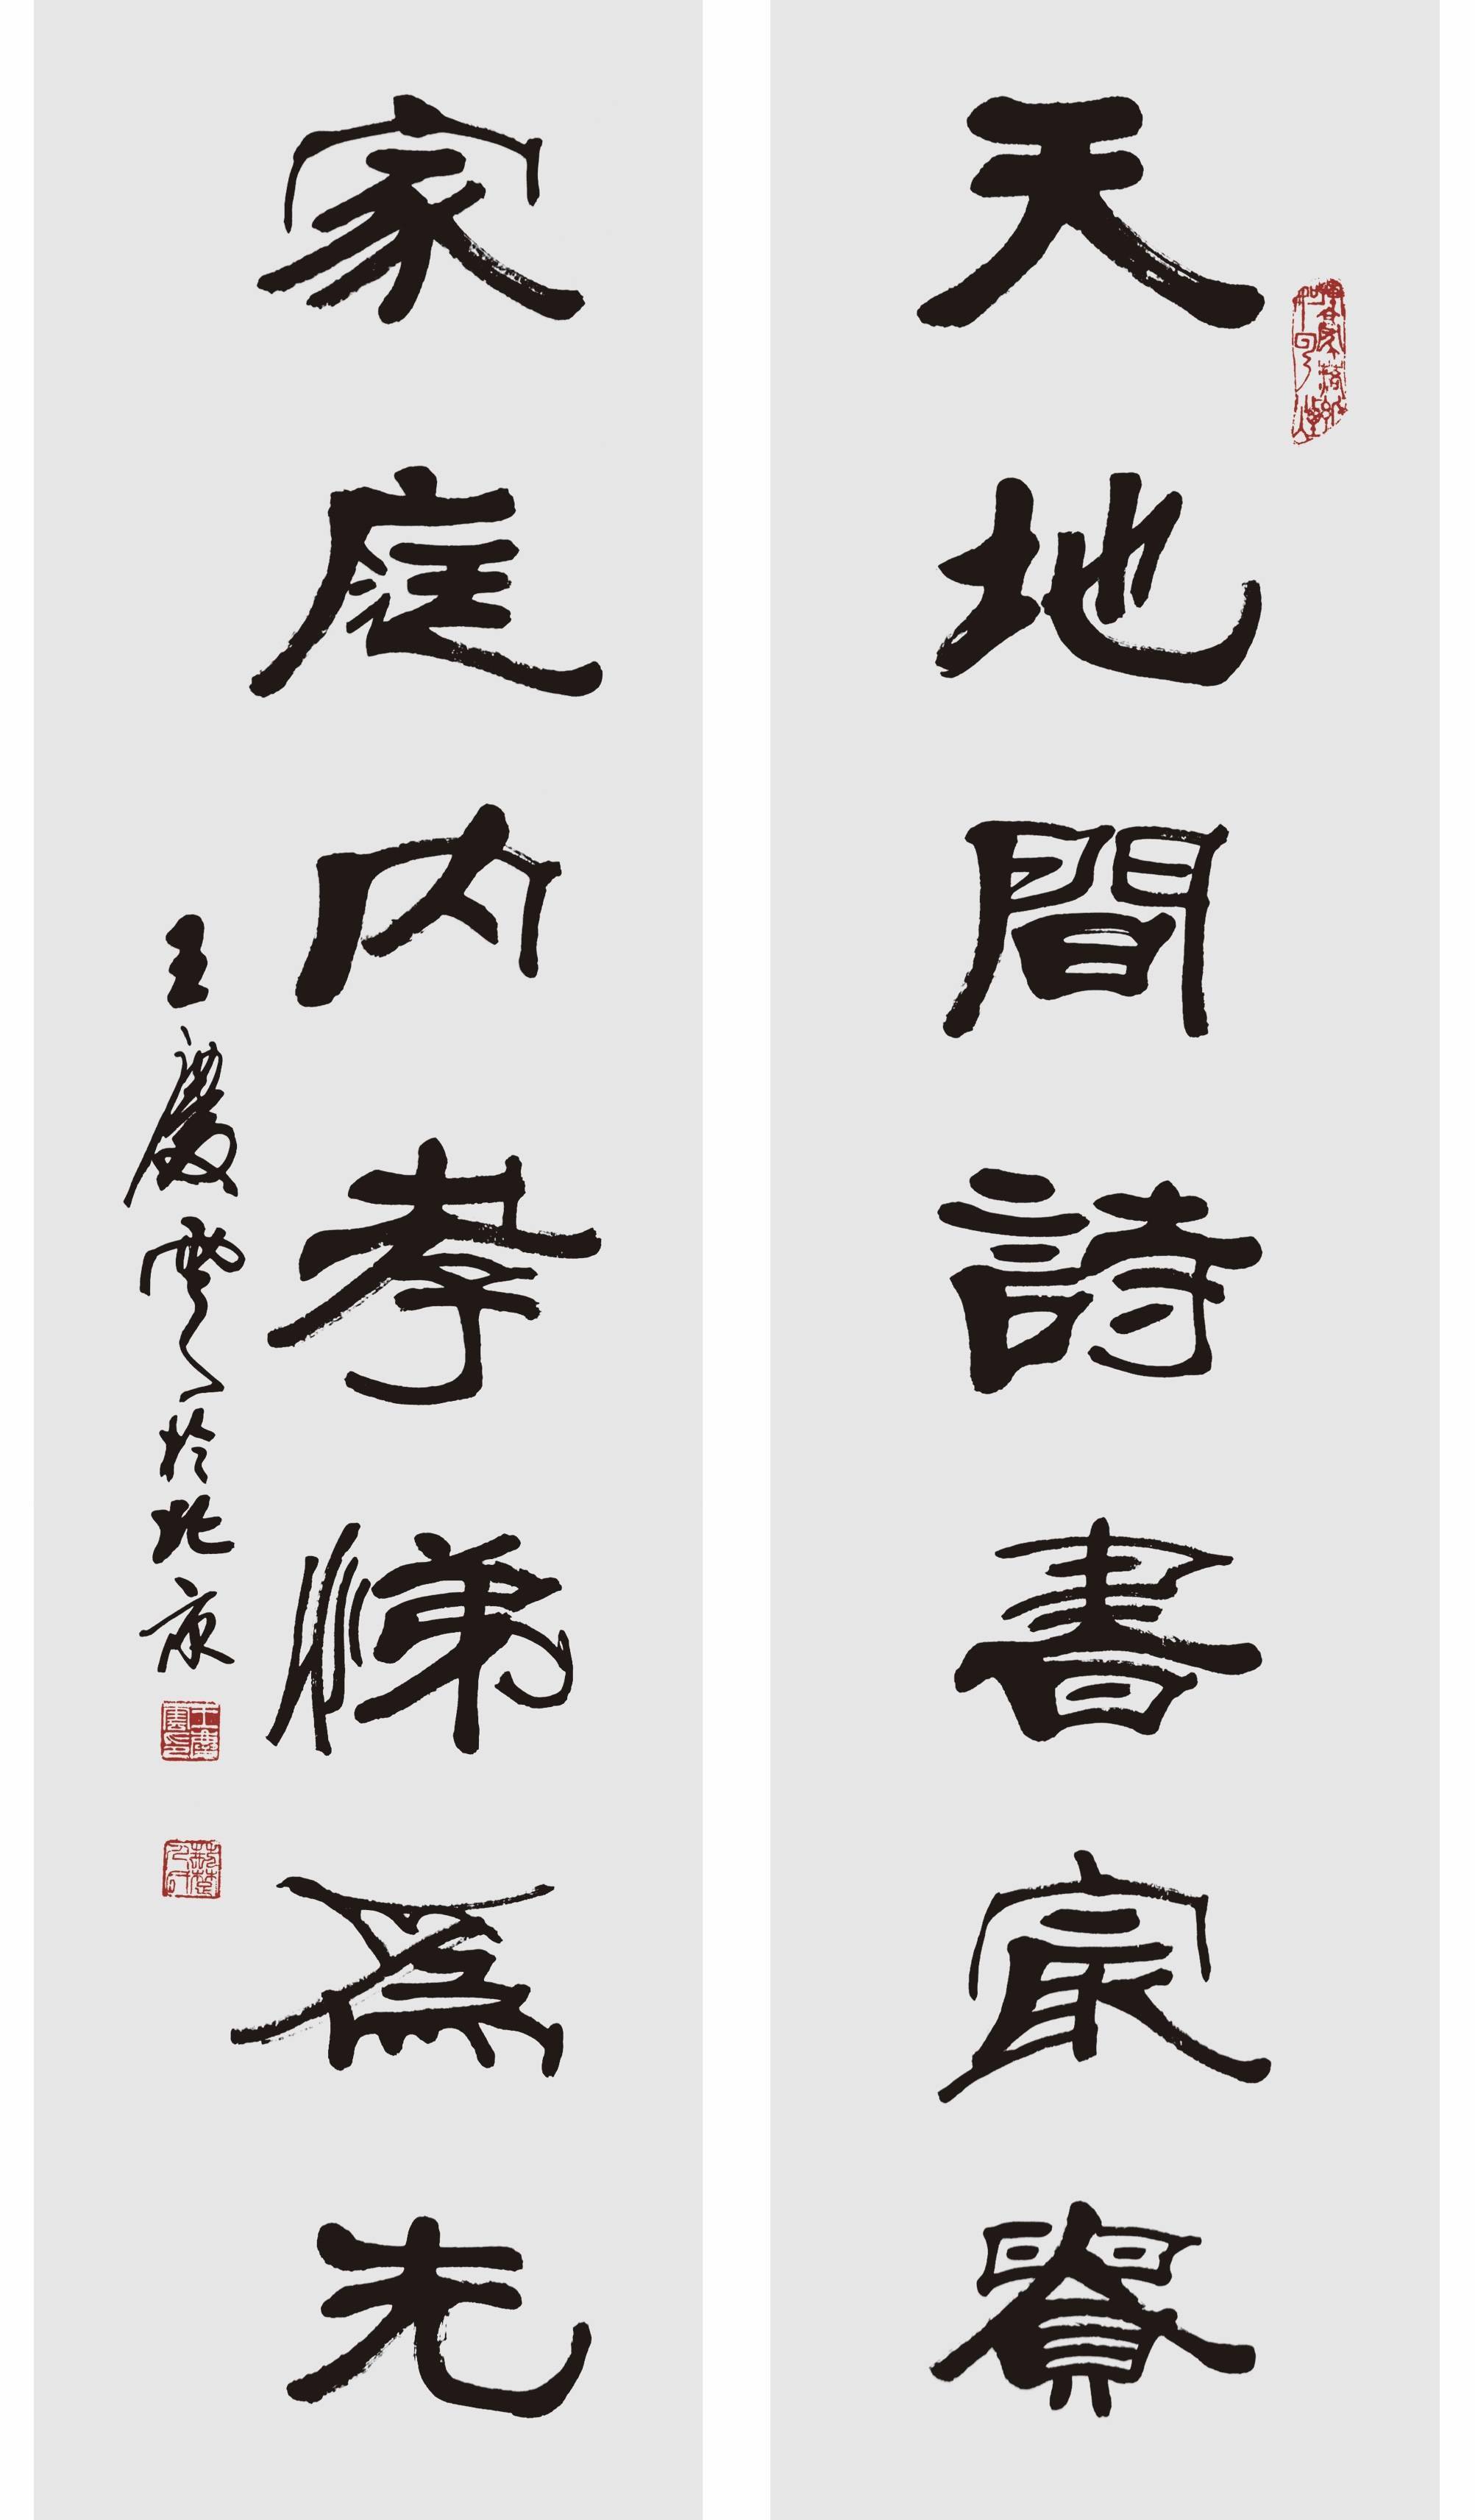 天地間詩書㝡貴
家庭内孝悌爲先
王慶雲於北京